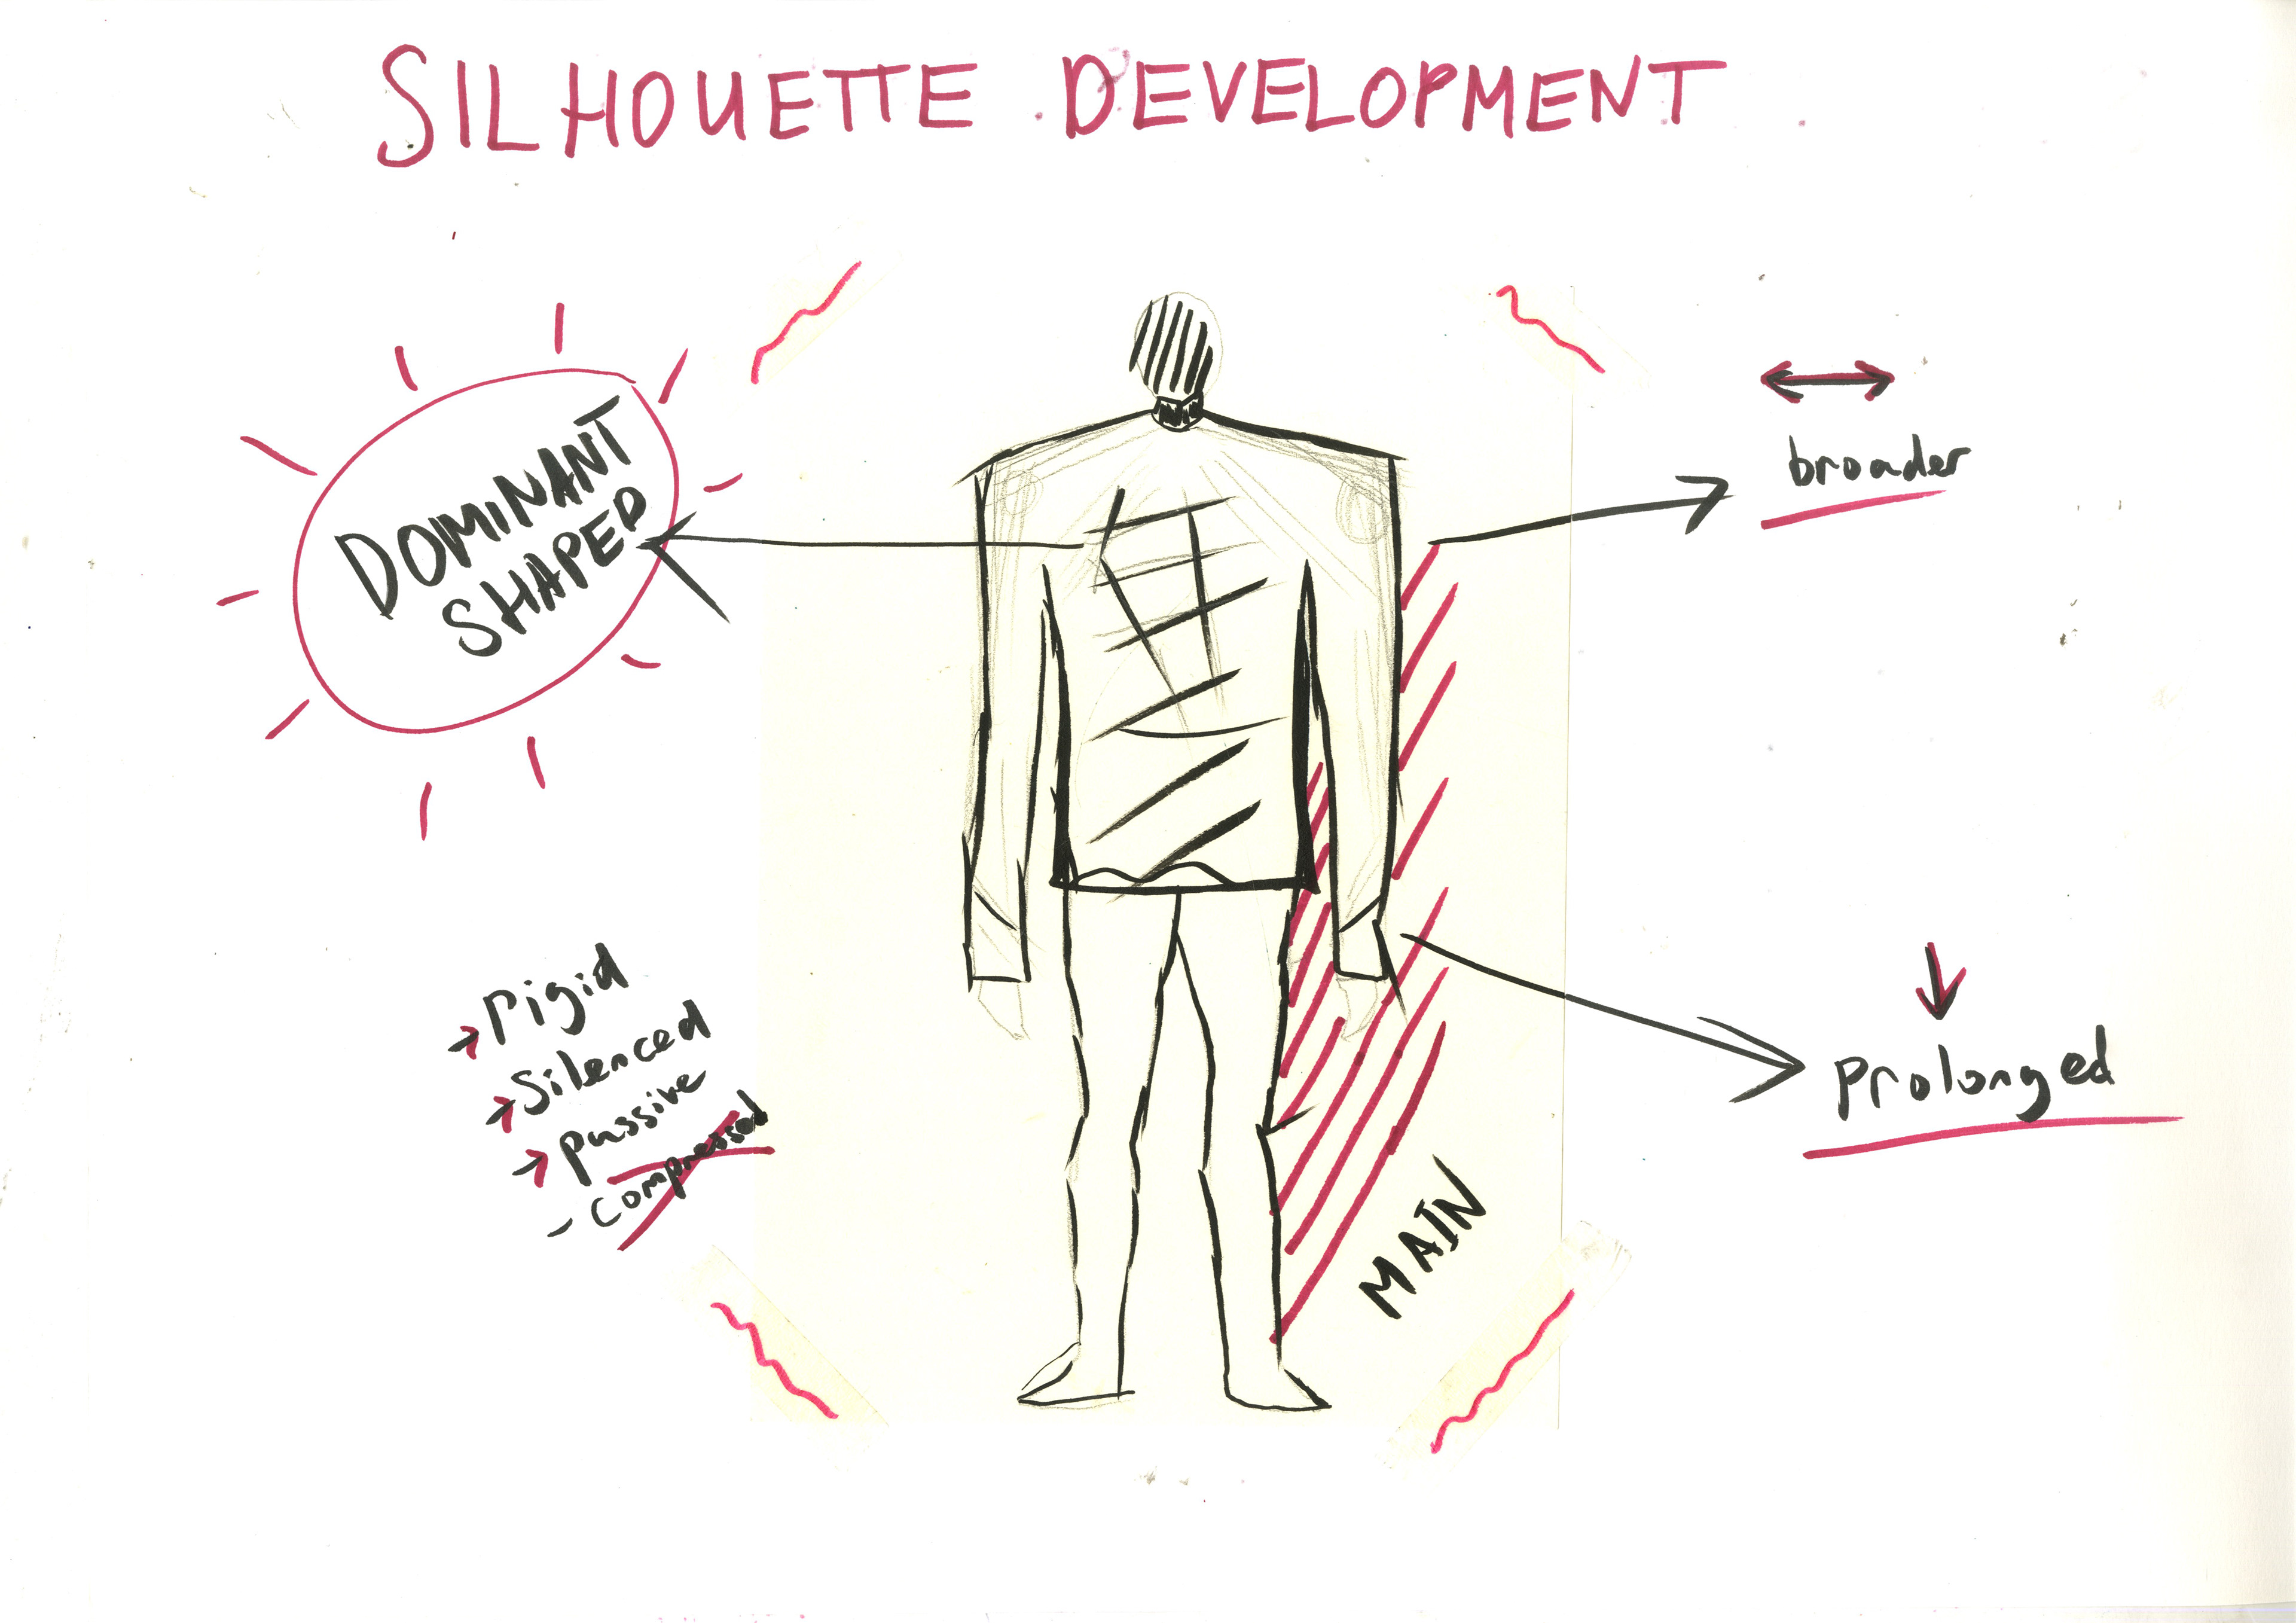 SILHOUETTE DEVELOPMENT
DOMINANT
SHAPED
broader
→ rigid
→ Silenced
→ passive
- compressed
prolonged
MAIN